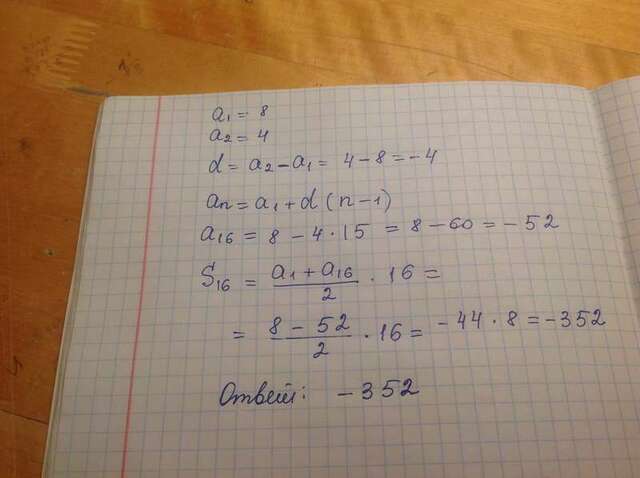 a₁ = 8
a₂ = 4
d = a₂ - a₁ = 4 - 8 = -4
aₙ = a₁ + d (n - 1)
a₁₆ = 8 - 4 · 15 = 8 - 60 = - 52
S₁₆ = (a₁ + a₁₆)/2 · 16 =
= (8 - 52)/2 · 16 = -44 · 8 = -352
Ответ: -352